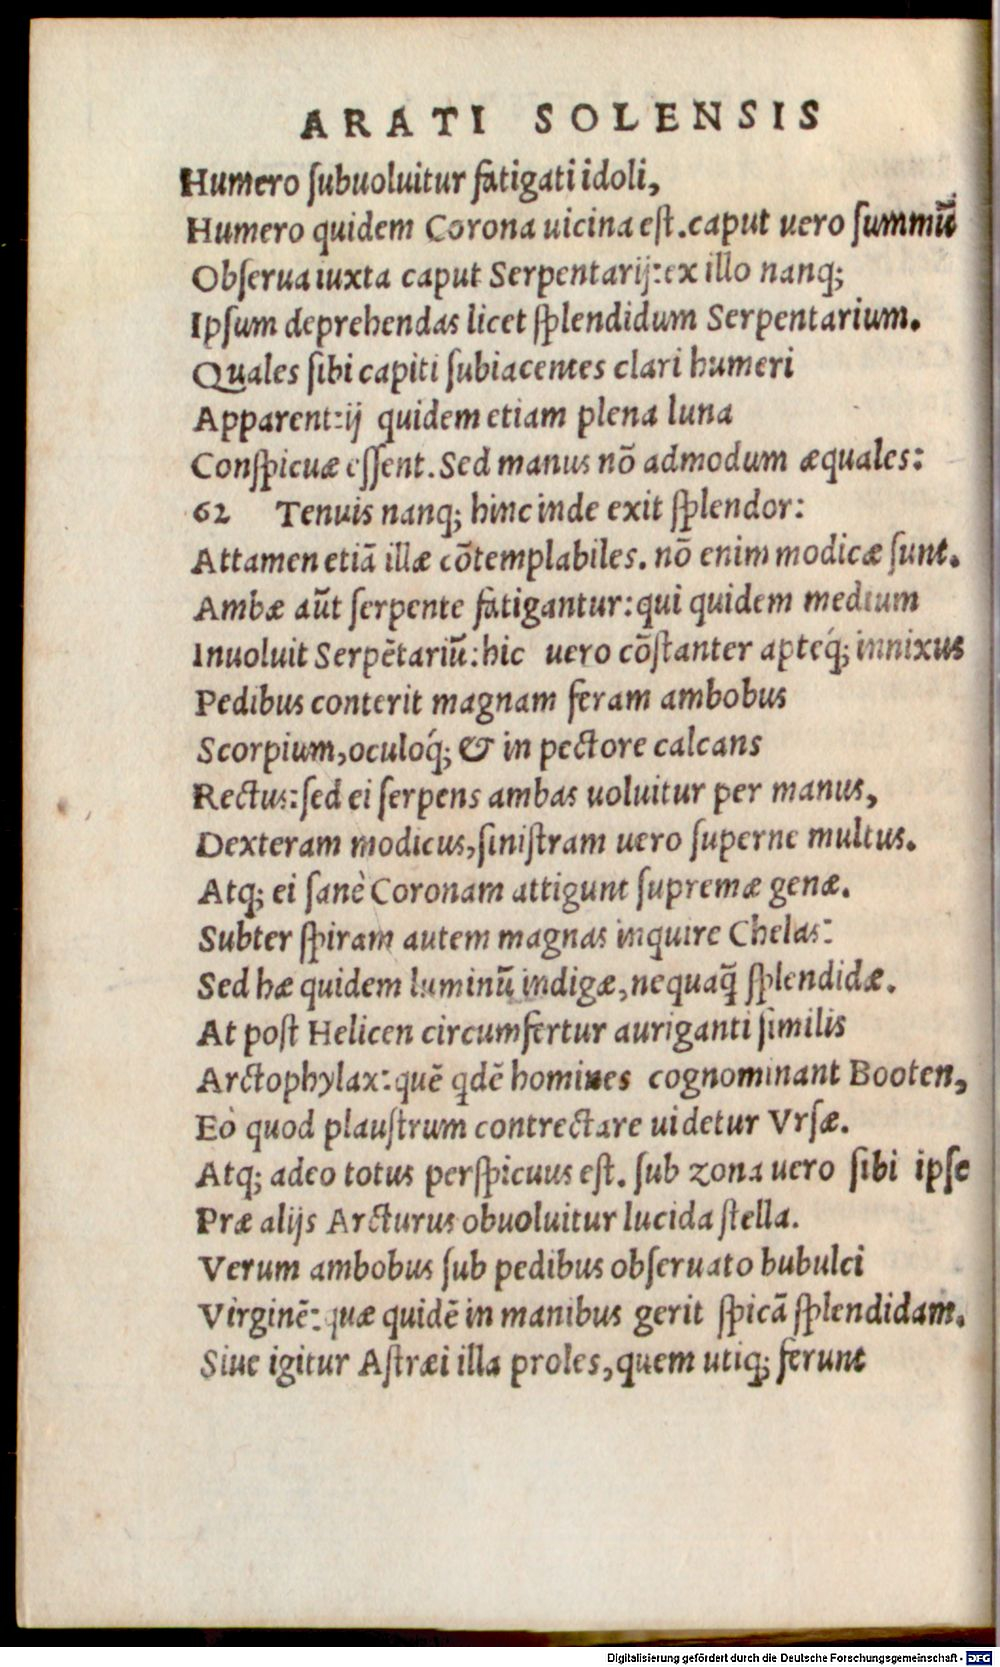 ARATI SOLENSIS
Humero ſubuoluitur fatigati idoli,
Humero quidem Corona uicina eſt. caput vero ſummũ
Obſerua iuxta caput Serpentarij: ex illo nanq;
Ipſum deprehendas licet ſplendidum Serpentarium.
Quales ſibi capiti ſubiacentes clari humeri
Apparent: ij quidem etiam plena luna
Conſpicuæ eſſent. Sed manus nõ admodum æquales:
62 Tenuis nanq; hinc inde exit ſplendor:
Attamen etiã illæ cõtemplabiles. nõ enim modicæ ſunt.
Ambæ aũt ſerpente fatigantur: qui quidem medium
Inuoluit Serpẽtariũ: hic uero cõſtanter apteq́; innixus
Pedibus conterit magnam feram ambobus
Scorpium, oculoq́; & in pectore calcans
Rectus: ſed ei ſerpens ambas uoluitur per manus,
Dexteram modicus, ſiniſtram vero ſuperne multus.
Atq; ei ſanè Coronam attigunt ſupremæ genæ.
Subter ſpiram autem magnas inquire Chelas:
Sed hæ quidem luminũ indigæ, nequaq̃ ſplendidæ.
At poſt Helicen circumfertur auriganti ſimilis
Arctophylax: quẽ qdẽ homines cognominant Booten,
Eò quod plauſtrum contrectare uidetur Vrſæ.
Atq; adeo totus perſpicuus eſt. ſub zona vero ſibi ipſe
Præ alijs Arcturus obuoluitur lucida ſtella.
Verum ambobus ſub pedibus obſeruato bubulci
Virginẽ: quæ quidẽ in manibus gerit ſpicã ſplendidam.
Siue igitur Aſtræi illa proles, quem utiq; ferunt
Digitalisierung gefördert durch die Deutsche Forschungsgemeinschaft - DFG